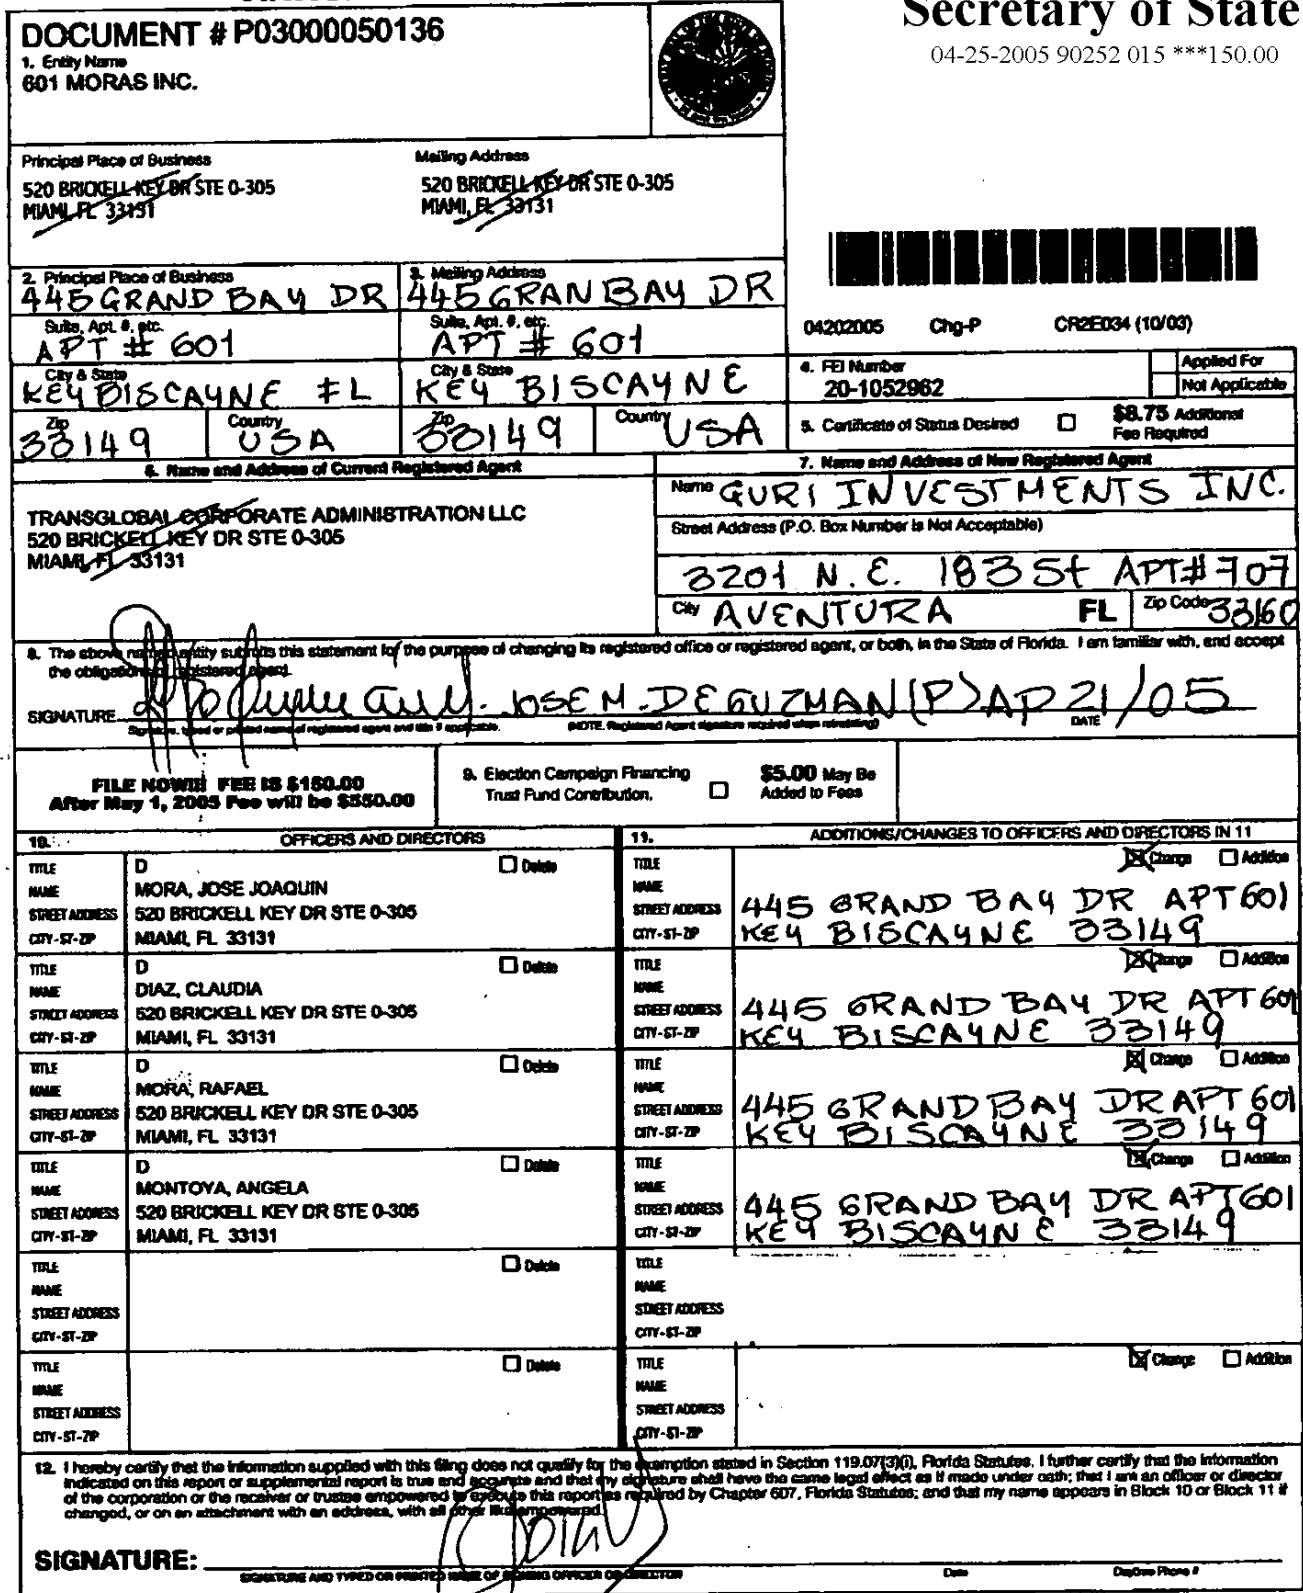 Secretary of State
04-25-2005 90252 015 ***150.00
DOCUMENT # P03000050136
1. Entity Name
601 MORAS INC.
Principal Place of Business
520 BRICKELL KEY DR STE 0-305
MIAMI, FL 33131
Mailing Address
520 BRICKELL KEY DR STE 0-305
MIAMI, FL 33131
2. Principal Place of Business
445 GRAND BAY DR
Suite, Apt. #, etc.
APT # 601
City & State
KEY BISCAYNE FL
Zip
33149
Country
USA
3. Mailing Address
445 GRAN BAY DR
Suite, Apt. #, etc.
APT # 601
City & State
KEY BISCAYNE
Zip
33149
Country
USA
04202005 Chg-P CR2E034 (10/03)
4. FEI Number
20-1052962
Applied For
Not Applicable
5. Certificate of Status Desired
$8.75 Additional
Fee Required
6. Name and Address of Current Registered Agent
TRANSGLOBAL CORPORATE ADMINISTRATION LLC
520 BRICKELL KEY DR STE 0-305
MIAMI, FL 33131
7. Name and Address of New Registered Agent
Name GURI INVESTMENTS INC.
Street Address (P.O. Box Number is Not Acceptable)
3201 N.E. 183 St APT# 707
City AVENTURA FL Zip Code 33160
8. The above named entity submits this statement for the purpose of changing its registered office or registered agent, or both, in the State of Florida. I am familiar with, and accept
the obligations of registered agent.
SIGNATURE JOSE M. DE GUZMAN (P) AP 21/05
Signature, typed or printed name of registered agent and title if applicable.
(NOTE: Registered Agent signature required when reinstating)
DATE
FILE NOW!!! FEE IS $150.00
After May 1, 2005 Fee will be $550.00
9. Election Campaign Financing
Trust Fund Contribution.
$5.00 May Be
Added to Fees
10. OFFICERS AND DIRECTORS
TITLE D Delete
NAME MORA, JOSE JOAQUIN
STREET ADDRESS 520 BRICKELL KEY DR STE 0-305
CITY-ST-ZIP MIAMI, FL 33131
TITLE D Delete
NAME DIAZ, CLAUDIA
STREET ADDRESS 520 BRICKELL KEY DR STE 0-305
CITY-ST-ZIP MIAMI, FL 33131
TITLE D Delete
NAME MORA, RAFAEL
STREET ADDRESS 520 BRICKELL KEY DR STE 0-305
CITY-ST-ZIP MIAMI, FL 33131
TITLE D Delete
NAME MONTOYA, ANGELA
STREET ADDRESS 520 BRICKELL KEY DR STE 0-305
CITY-ST-ZIP MIAMI, FL 33131
TITLE Delete
NAME
STREET ADDRESS
CITY-ST-ZIP
TITLE Delete
NAME
STREET ADDRESS
CITY-ST-ZIP
11. ADDITIONS/CHANGES TO OFFICERS AND DIRECTORS IN 11
TITLE Change Addition
NAME
STREET ADDRESS 445 GRAND BAY DR APT 601
CITY-ST-ZIP KEY BISCAYNE 33149
TITLE Change Addition
NAME
STREET ADDRESS 445 GRAND BAY DR APT 601
CITY-ST-ZIP KEY BISCAYNE 33149
TITLE Change Addition
NAME
STREET ADDRESS 445 GRAND BAY DR APT 601
CITY-ST-ZIP KEY BISCAYNE 33149
TITLE Change Addition
NAME
STREET ADDRESS 445 GRAND BAY DR APT 601
CITY-ST-ZIP KEY BISCAYNE 33149
TITLE
NAME
STREET ADDRESS
CITY-ST-ZIP
TITLE Change Addition
NAME
STREET ADDRESS
CITY-ST-ZIP
12. I hereby certify that the information supplied with this filing does not qualify for the exemption stated in Section 119.07(3)(i), Florida Statutes. I further certify that the information
indicated on this report or supplemental report is true and accurate and that my signature shall have the same legal effect as if made under oath; that I am an officer or director
of the corporation or the receiver or trustee empowered to execute this report as required by Chapter 607, Florida Statutes; and that my name appears in Block 10 or Block 11 if
changed, or on an attachment with an address, with all other like empowered.
SIGNATURE:
SIGNATURE AND TYPED OR PRINTED NAME OF SIGNING OFFICER OR DIRECTOR
Date
Daytime Phone #